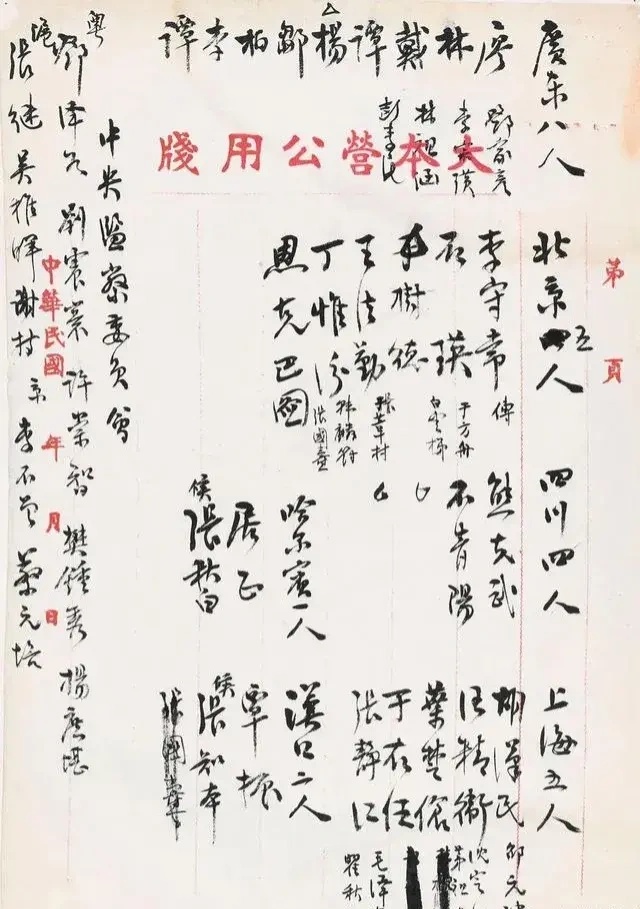 大本營公用牋
第 頁
廣東八人
廖 林 戴 譚 楊 鄒 柏 李 譚
鄧家彥
李宗璜
林祖涵
彭素民
北京五人
李守常 傅
石瑛 于方舟
于樹德 白雲梯
王法勤 張葦村
丁惟汾 韓麟符 張國燾
恩克巴圖
四川四人
熊克武
石青陽
哈尔賓一人
居正
侯 張秋白
上海五人
胡漢民 邵元冲
汪精衛 沈定
葉楚傖 茅祖權
于右任
張靜江 毛泽
瞿秋
漢口二人
覃振
侯 張知本
張國燾
中央監察委員會
粵 鄧泽如 劉震寰 許崇智 樊鍾秀 楊庶堪
滬 張继 吴稚暉 謝持 京 李石曾 蔡元培
中華民國 年 月 日